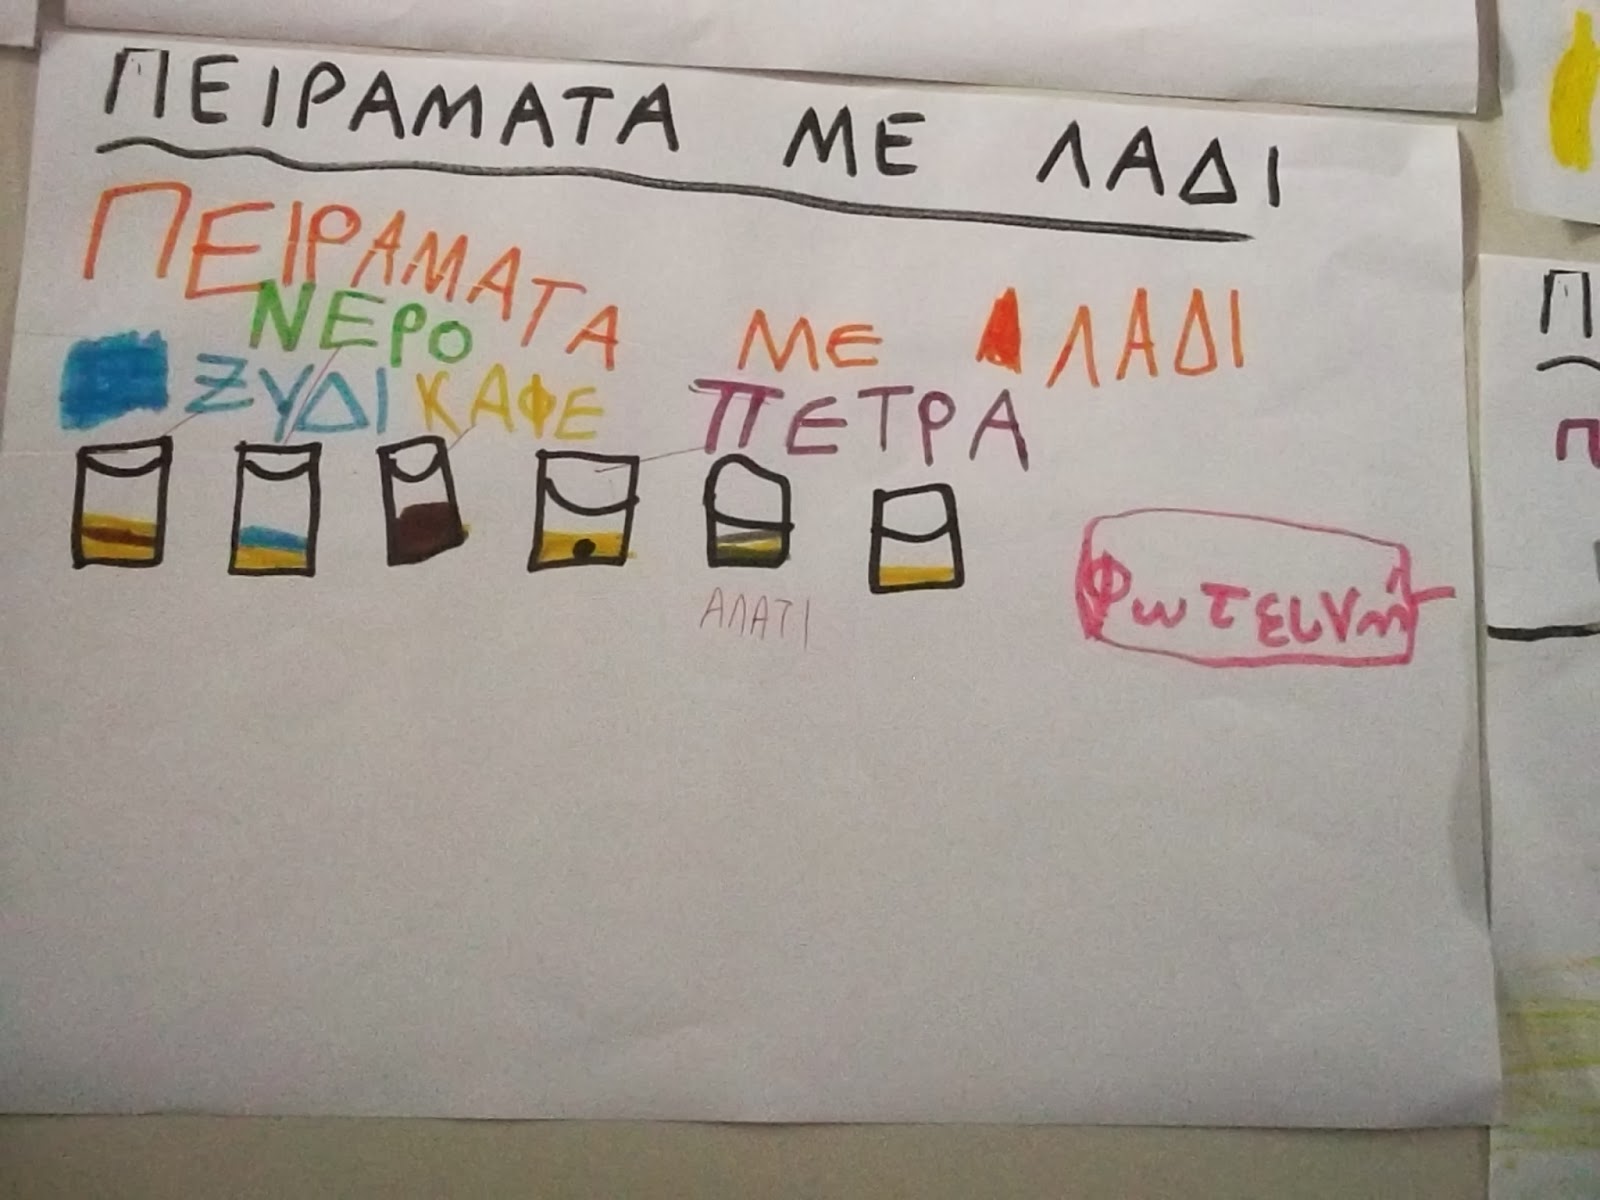 ΠΕΙΡΑΜΑΤΑ ΜΕ ΛΑΔΙ
ΠΕΙΡΑΜΑΤΑ ΜΕ ΛΑΔΙ
ΝΕΡΟ
ΞΥΔΙ ΚΑΦΕ ΠΕΤΡΑ
ΑΛΑΤΙ
Φωτεινή
Π
Π